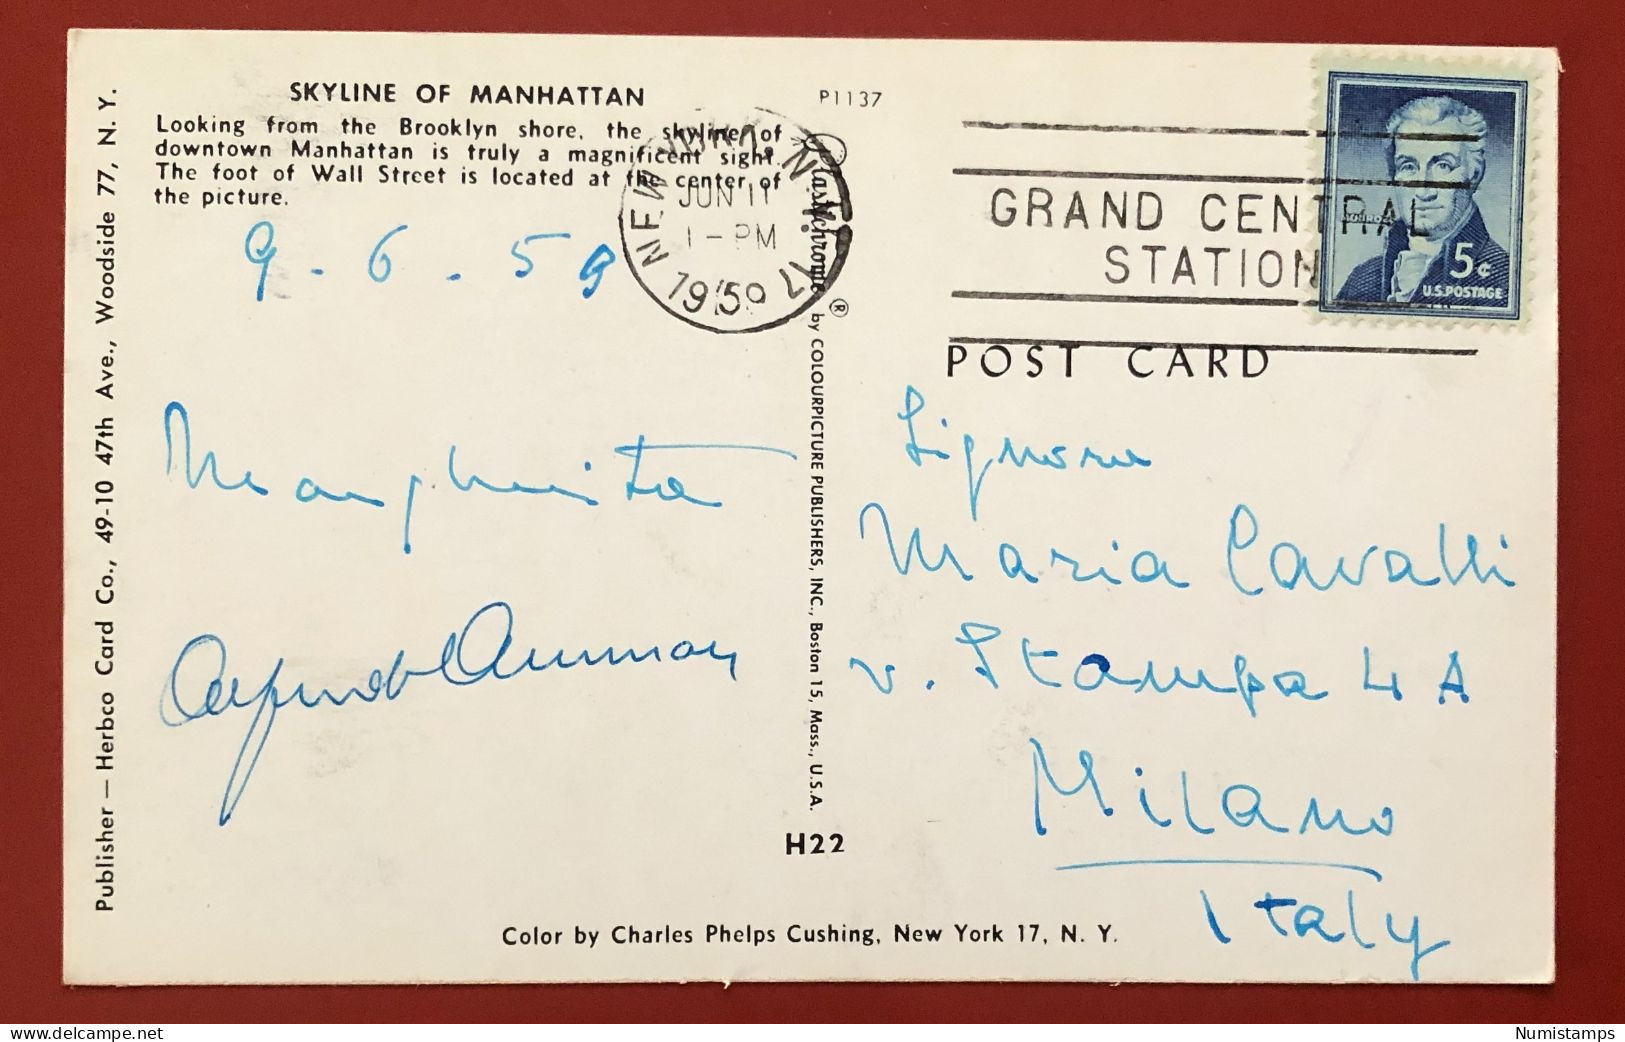 SKYLINE OF MANHATTAN
Looking from the Brooklyn shore, the skyline of
downtown Manhattan is truly a magnificent sight.
The foot of Wall Street is located at the center of
the picture.
P1137
9-6.59
Margherita
Publisher — Herbco Card Co., 49-10 47th Ave., Woodside 77, N. Y.
NEW YORK, N.Y. 17
JUN 11
1-PM
1959
Plastichrome ® by COLOURPICTURE PUBLISHERS, INC., Boston 15, Mass., U.S.A.
H22
GRAND CENTRAL
STATION
5¢
U.S. POSTAGE
POST CARD
Signora
Maria Cavalli
v. Stampa 4 A
Milano
Italy
Color by Charles Phelps Cushing, New York 17, N. Y.
delcampe.net
Numistamps